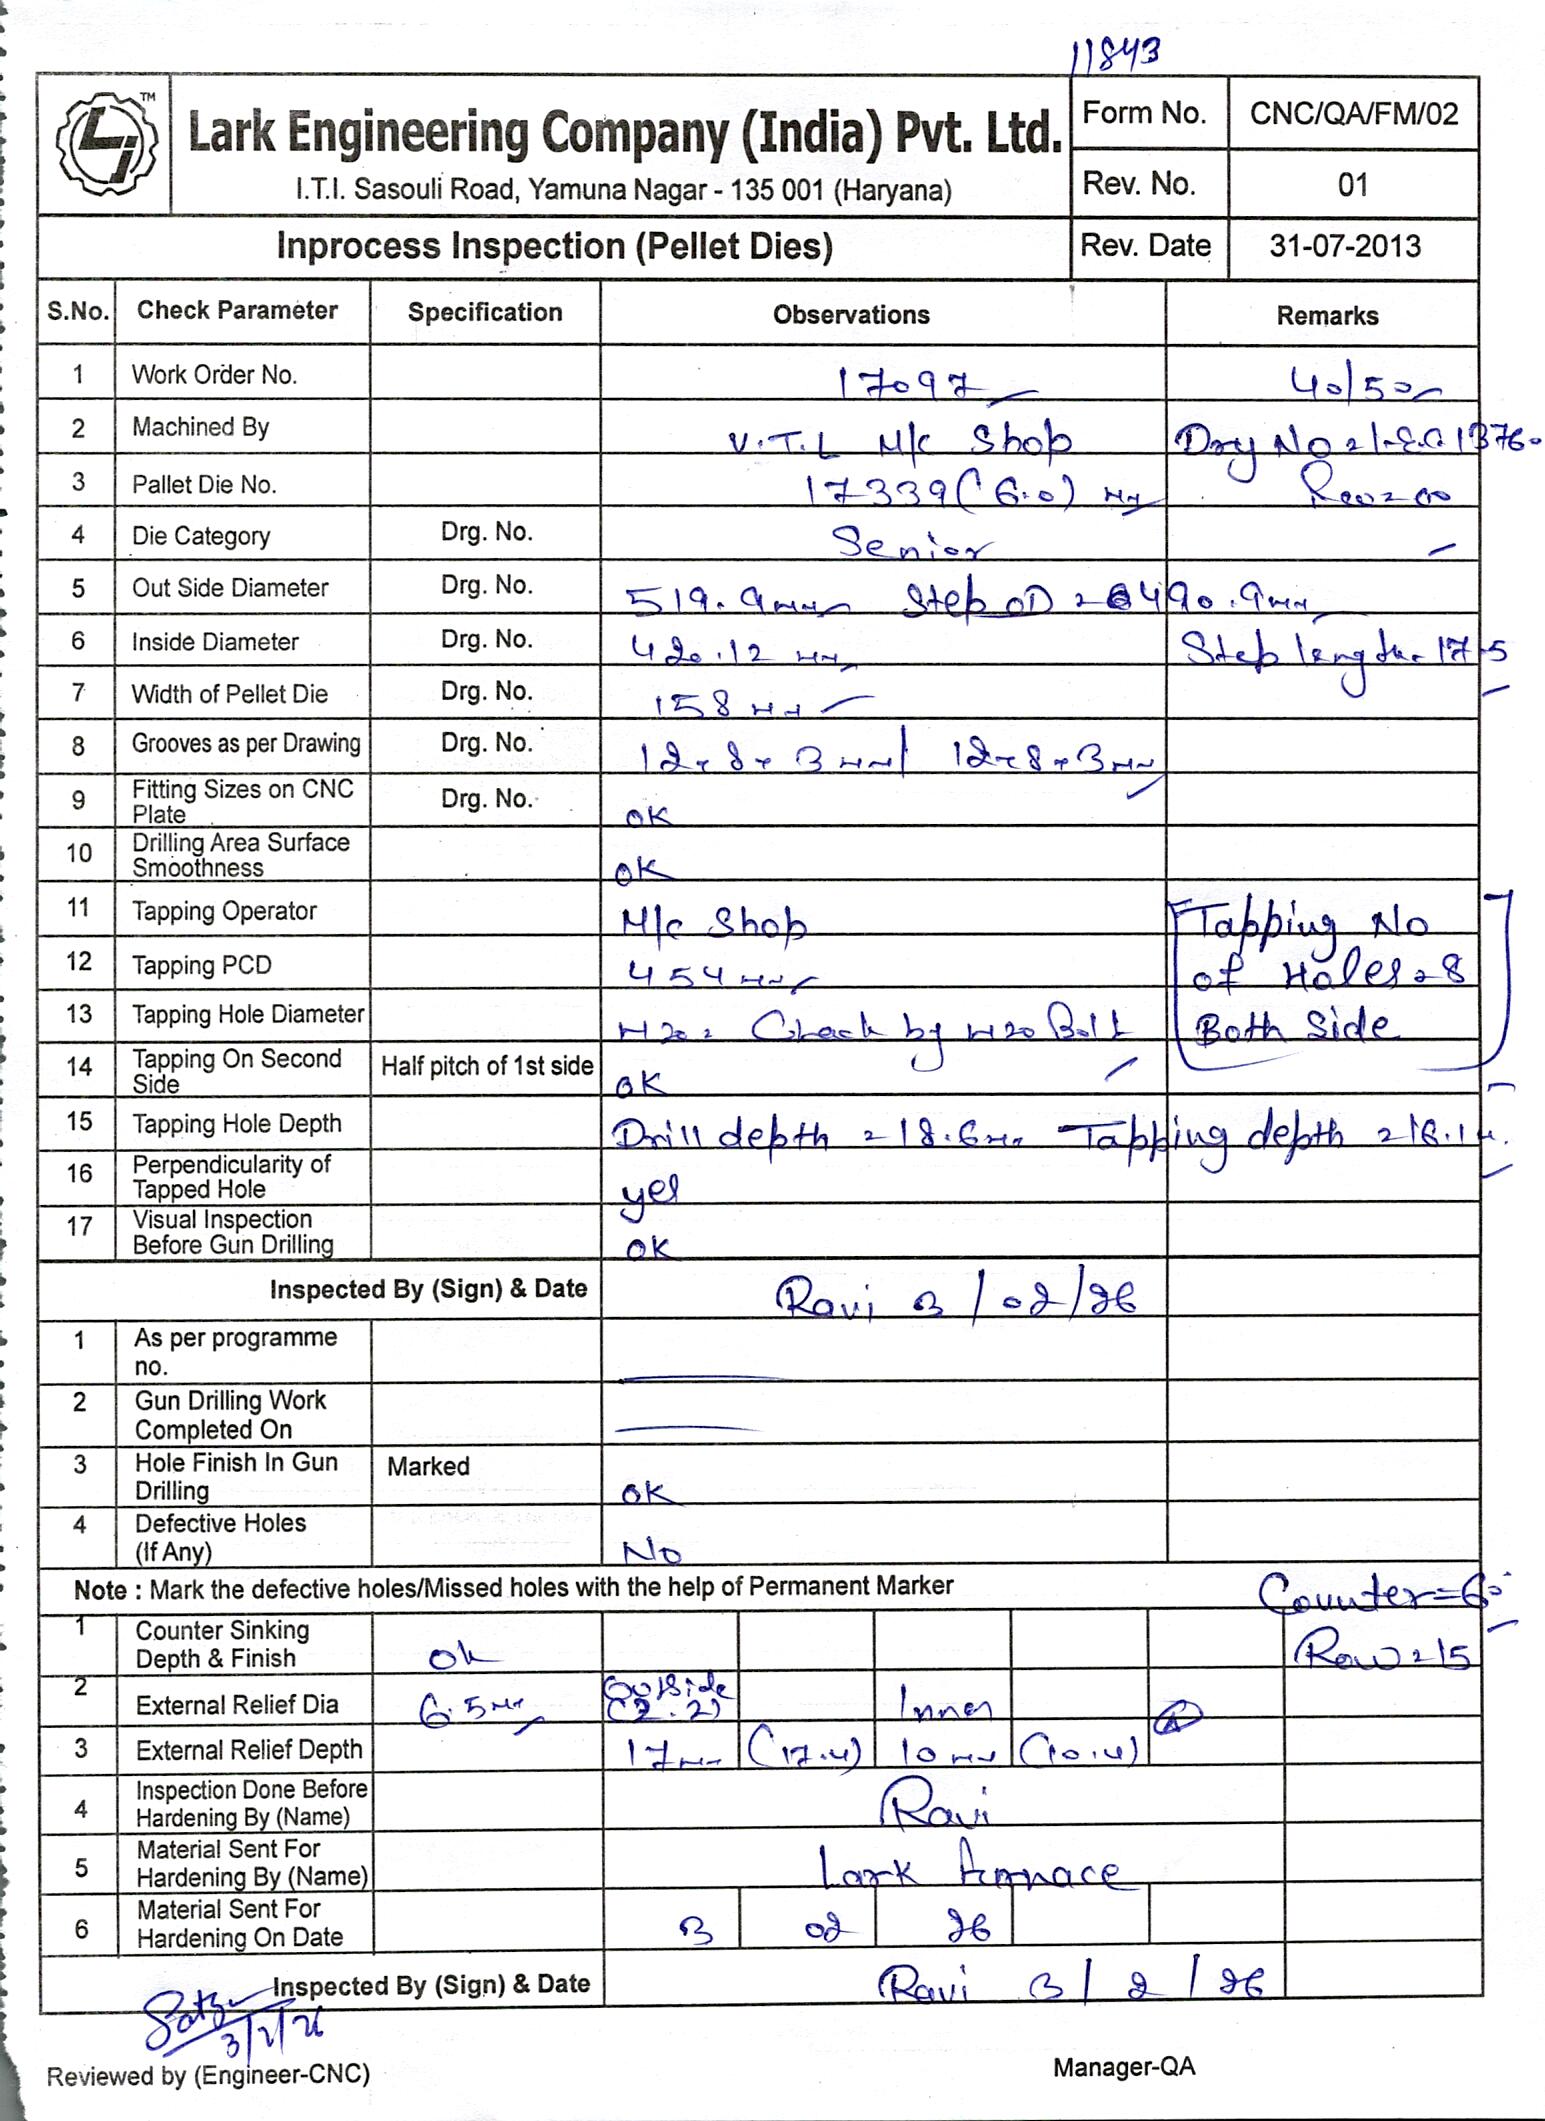 11843
TM
Lark Engineering Company (India) Pvt. Ltd.
I.T.I. Sasouli Road, Yamuna Nagar - 135 001 (Haryana)
Form No. CNC/QA/FM/02
Rev. No. 01
Inprocess Inspection (Pellet Dies) Rev. Date 31-07-2013
S.No. Check Parameter Specification Observations Remarks
1 Work Order No. 17097 40/50
2 Machined By V.T.L M/c Shop Drg No
3 Pallet Die No. 17339 (6.0) mm Rev=00
4 Die Category Drg. No. Senior
5 Out Side Diameter Drg. No. 519.9mm Step OD = 490.9mm
6 Inside Diameter Drg. No. 420.12 mm Step length 17.5
7 Width of Pellet Die Drg. No. 158 mm
8 Grooves as per Drawing Drg. No. 12×8×3 mm / 12×8×3mm
9 Fitting Sizes on CNC Plate Drg. No. OK
10 Drilling Area Surface Smoothness OK
11 Tapping Operator M/c Shop Tapping No
12 Tapping PCD 454mm of Holes=8
13 Tapping Hole Diameter M20 = Check by M20 Bolt Both Side
14 Tapping On Second Side Half pitch of 1st side OK
15 Tapping Hole Depth Drill depth = 18.6mm Tapping depth = 16.1
16 Perpendicularity of Tapped Hole yes
17 Visual Inspection Before Gun Drilling OK
Inspected By (Sign) & Date Ravi 3/02/26
1 As per programme no.
2 Gun Drilling Work Completed On
3 Hole Finish In Gun Drilling Marked OK
4 Defective Holes (If Any) No
Note : Mark the defective holes/Missed holes with the help of Permanent Marker Counter=60°
1 Counter Sinking Depth & Finish Ok Row=15
2 External Relief Dia 6.5mm Outside (2.2) Inner
3 External Relief Depth 17mm (17.4) 10mm (10.4)
4 Inspection Done Before Hardening By (Name) Ravi
5 Material Sent For Hardening By (Name) Lark furnace
6 Material Sent For Hardening On Date 3 02 26
Inspected By (Sign) & Date Ravi 3/2/26
3/2/26
Reviewed by (Engineer-CNC) Manager-QA